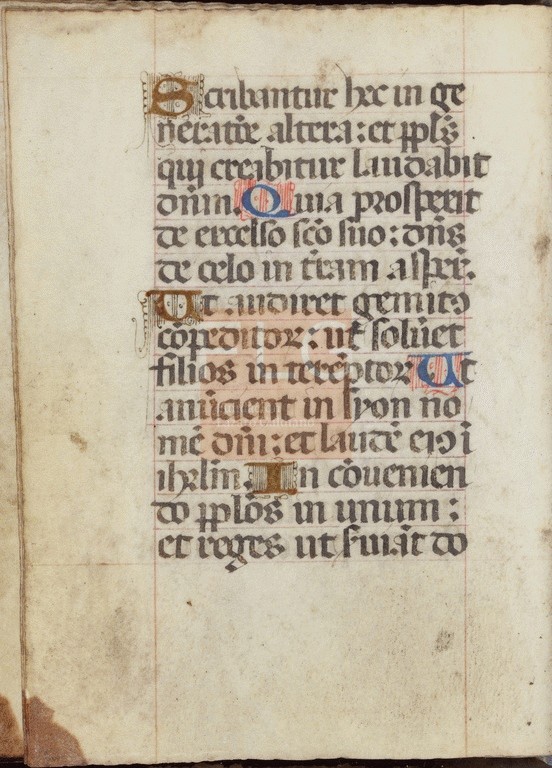 Scribantur hec in ge
neratõe altera: et ppls̃
qui creabitur laudabit
dñm. Quia prospexit
de excelso sc̃o suo: dñs
de celo in t̃ram aspex̃.
Ut audiret gemitꝰ
cõpeditoꝝ: ut solũet
filios in terẽptoꝝ Ut
anũcient in syon no
mẽ dñi: et laudẽ eiꝰ ĩ
ihrl̃m. In cõuenien
do pplõs in unum:
et reges ut ſ̃uiãt do